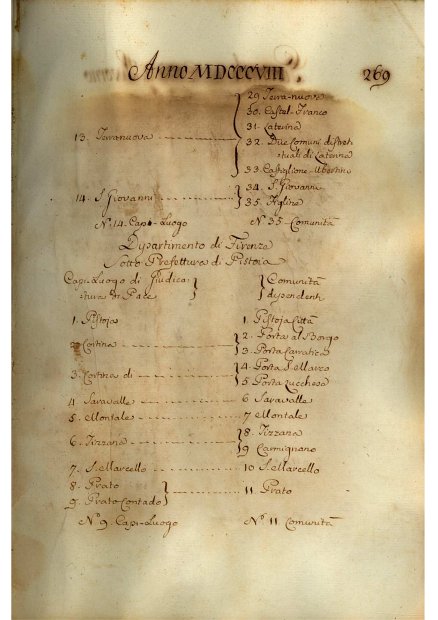 Anno MDCCCVIII 269
29. Terra-nuova
30. Castel-Franco
31. Laterina
13. Terranuova 32. Due Comuni distret
tuali di Laterina
33. Castiglione-Ubertini
14. S. Giovanni 34. S. Giovanni
35. Aglina
N.º 14. Capi-Luogo N.º 35. Comunità
Dipartimento di Firenze
Sotto Prefettura di Pistoia
Capi-Luogo di Giudica Comunità
tura di Pace dipendenti
1. Pistoja 1. Pistoja Città
2. Cortina 2. Porta al Borgo
3. Porta Carratica
3. Cortina di 4. Porta S. Marco
5. Porta Lucchese
4. Saravalle 6. Saravalle
5. Montale 7. Montale
6. Tizzana 8. Tizzana
9. Carmignano
7. S. Marcello 10. S. Marcello
8. Prato 11. Prato
9. Prato-Contado
N.º 9. Capi-Luogo N.º 11 Comunità